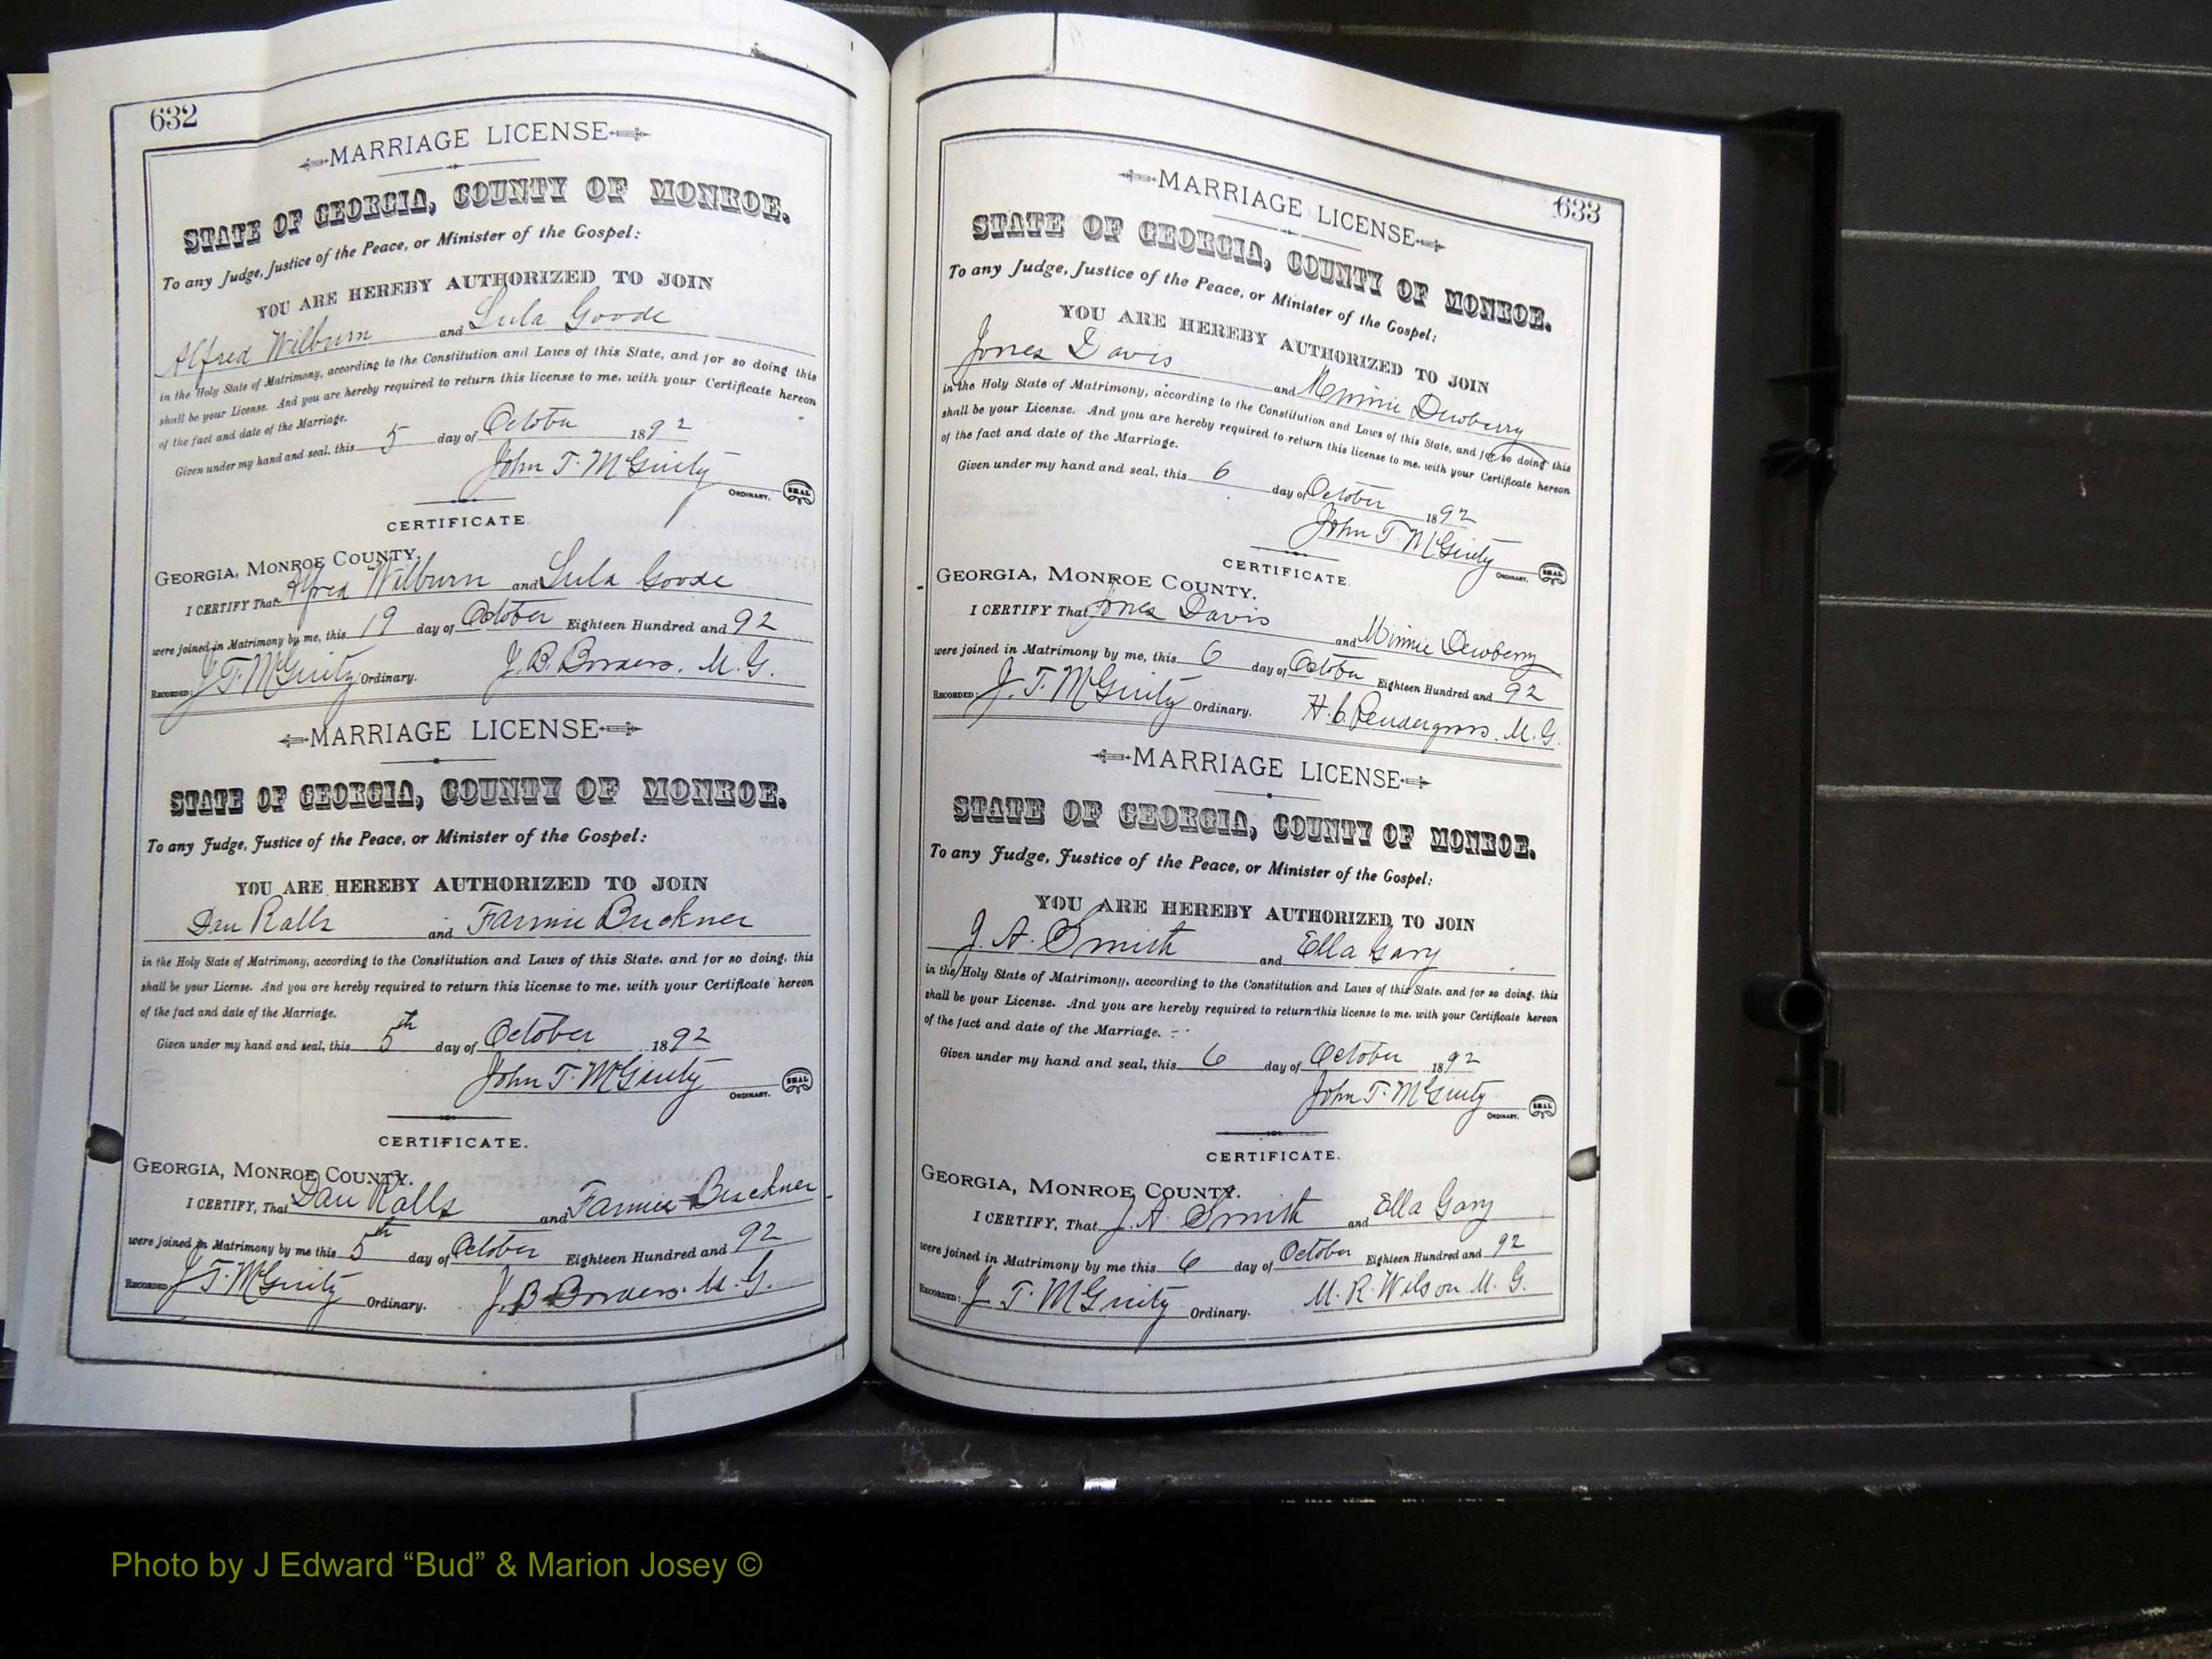 632
MARRIAGE LICENSE
STATE OF GEORGIA, COUNTY OF MONROE.
To any Judge, Justice of the Peace, or Minister of the Gospel:
YOU ARE HEREBY AUTHORIZED TO JOIN
Alfred Wilburn and Lula Goode
in the Holy State of Matrimony, according to the Constitution and Laws of this State, and for so doing this
shall be your License. And you are hereby required to return this license to me, with your Certificate hereon
of the fact and date of the Marriage.
Given under my hand and seal, this 5 day of October 1892
John T. McGinty
ORDINARY. SEAL
CERTIFICATE.
GEORGIA, MONROE COUNTY.
I CERTIFY That Alfred Wilburn and Lula Goode
were joined in Matrimony by me, this 19 day of October Eighteen Hundred and 92
RECORDED: J. T. McGinty Ordinary. J. B. Borders. M. G.
MARRIAGE LICENSE
STATE OF GEORGIA, COUNTY OF MONROE.
To any Judge, Justice of the Peace, or Minister of the Gospel:
YOU ARE HEREBY AUTHORIZED TO JOIN
Dan Ralls and Fannie Buckner
in the Holy State of Matrimony, according to the Constitution and Laws of this State, and for so doing, this
shall be your License. And you are hereby required to return this license to me, with your Certificate hereon
of the fact and date of the Marriage.
Given under my hand and seal, this 5th day of October 1892
John T. McGinty
ORDINARY. SEAL
CERTIFICATE.
GEORGIA, MONROE COUNTY.
I CERTIFY, That Dan Ralls and Fannie Buckner
were joined in Matrimony by me this 5th day of October Eighteen Hundred and 92
RECORDED: J. T. McGinty Ordinary. J. B. Borders. M. G.
633
MARRIAGE LICENSE
STATE OF GEORGIA, COUNTY OF MONROE.
To any Judge, Justice of the Peace, or Minister of the Gospel:
YOU ARE HEREBY AUTHORIZED TO JOIN
Jones Davis and Minnie Dewberry
in the Holy State of Matrimony, according to the Constitution and Laws of this State, and for so doing this
shall be your License. And you are hereby required to return this license to me, with your Certificate hereon
of the fact and date of the Marriage.
Given under my hand and seal, this 6 day of October 1892
John T. McGinty
ORDINARY. SEAL
CERTIFICATE.
GEORGIA, MONROE COUNTY.
I CERTIFY That Jones Davis and Minnie Dewberry
were joined in Matrimony by me, this 6 day of October Eighteen Hundred and 92
RECORDED: J. T. McGinty Ordinary. H. C. Pendergrass. M. G.
MARRIAGE LICENSE
STATE OF GEORGIA, COUNTY OF MONROE.
To any Judge, Justice of the Peace, or Minister of the Gospel:
YOU ARE HEREBY AUTHORIZED TO JOIN
J. A. Smith and Ella Gary
in the Holy State of Matrimony, according to the Constitution and Laws of this State, and for so doing, this
shall be your License. And you are hereby required to return this license to me, with your Certificate hereon
of the fact and date of the Marriage.
Given under my hand and seal, this 6 day of October 1892
John T. McGinty
ORDINARY. SEAL
CERTIFICATE.
GEORGIA, MONROE COUNTY.
I CERTIFY, That J. A. Smith and Ella Gary
were joined in Matrimony by me this 6 day of October Eighteen Hundred and 92
RECORDED: J. T. McGinty Ordinary. M. R. Wilson M. G.
Photo by J Edward “Bud” & Marion Josey ©